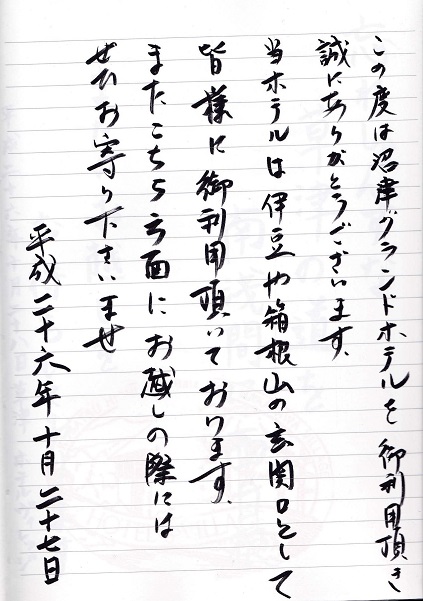 この度は沼津グランドホテルを御利用頂き
誠にありがとうございます。
当ホテルは伊豆や箱根山の玄関口として
皆様に御利用頂いております。
またこちら方面にお越しの際には
ぜひお寄り下さいませ
平成二十六年十月二十七日